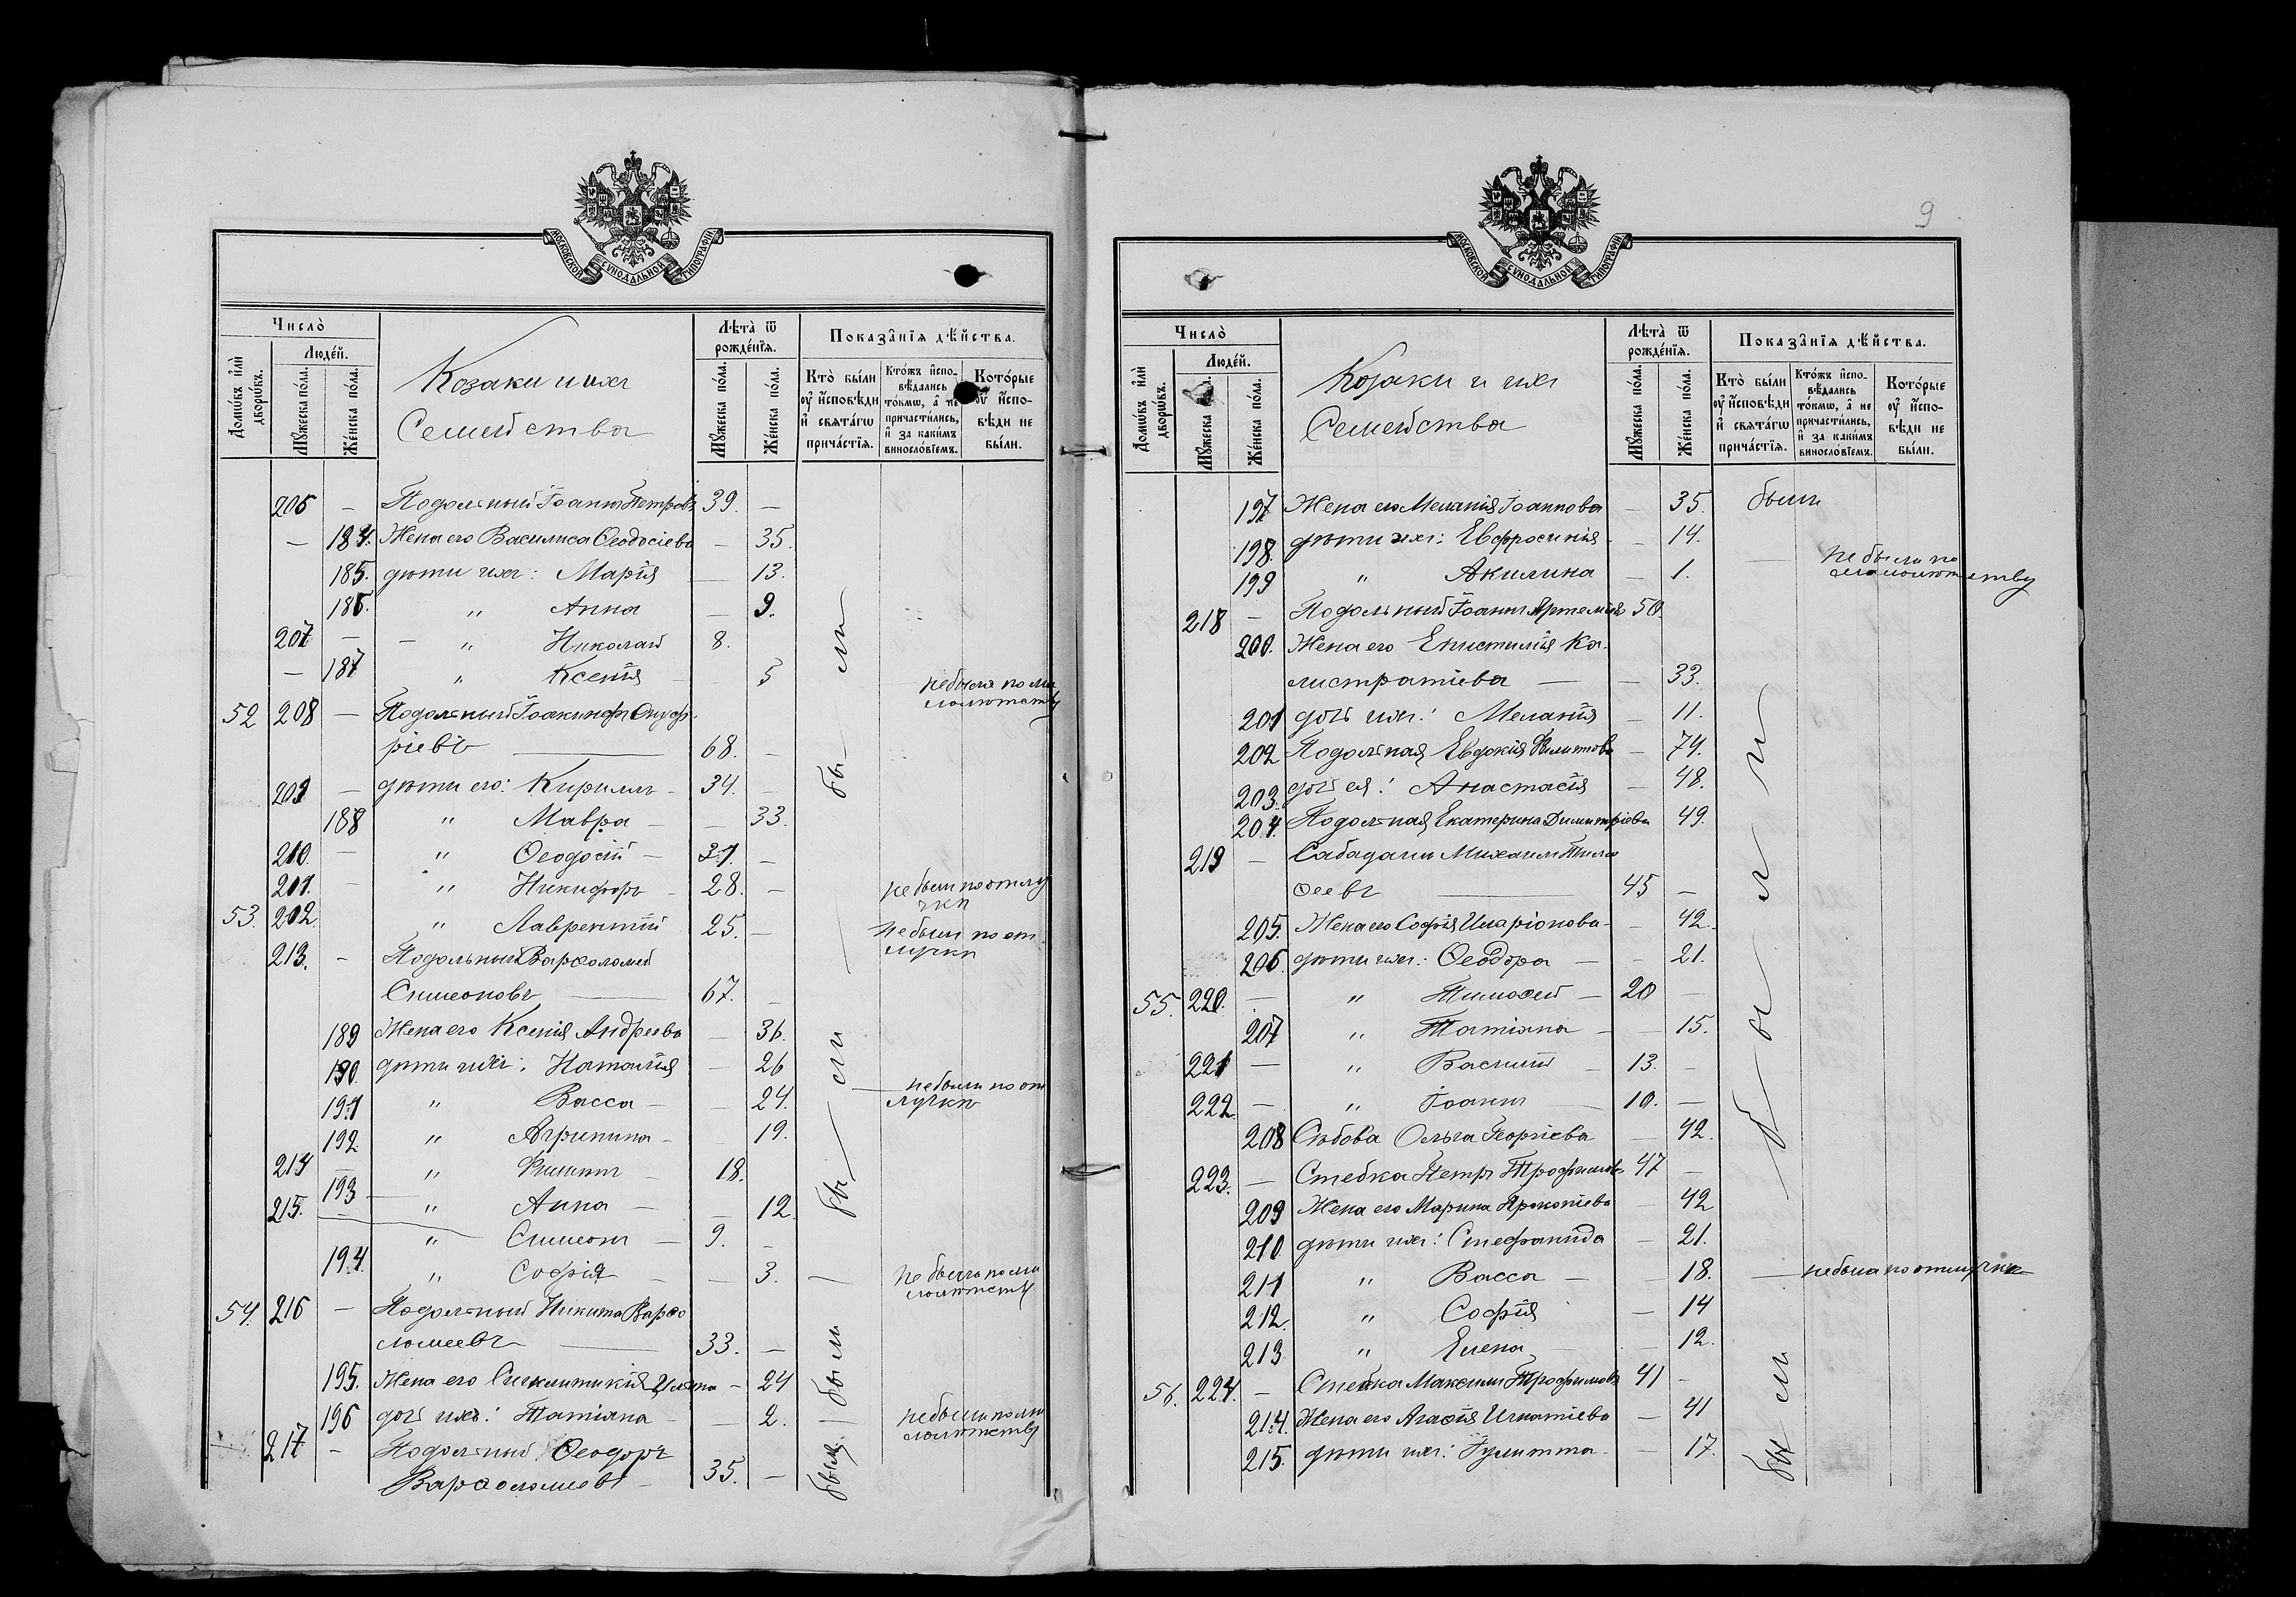 МОСКОВСКОЙ СѴНОДАЛЬНОЙ ТИПОГРАФІИ
Число̀
Домѡ́въ и҆лѝ дворѡ́въ.
Люде́й.
Мꙋ́жеска по́ла.
Же́нска по́ла.
Козаки и ихъ
Семейства
Лѣ́та ѿ рожде́нїѧ.
Мꙋ́жеска по́ла.
Же́нска по́ла.
Показа̑нїѧ дѣ́йства.
Кто̀ бы́ли ᲂу҆ и҆́сповѣди и҆ свѧта́гѡ прича́стїѧ.
Кто́жъ и҆спо-вѣ́дались то́кмѡ, а҆ не причасти́лись, и҆ за каки́мъ винносло́вїемъ.
Кото́рые ᲂу҆ и҆́спо-вѣди не бы́ли.
206 — Подольный Іоаннъ Петровъ 39. —
— 184. Жена его Василиса Ѳеодосіева — 35.
185. дѣти ихъ: Марія — 13.
186. " Анна — 9.
207 — " Николай 8.
— 187 " Ксенія — 5 не была по ма
лолѣтству
52 208 — Подольный Іоакинфъ Онуф-
ріевъ — 68. —
209 — дѣти его: Кириллъ — 34. —
188 " Мавра — 33.
210. — " Ѳеодосій — 31. —
211. — " Никифоръ — 28. — не были по отлу
чкѣ
53. 212. " Лаврентій 25. — не были по от
лучкѣ
213. — Подольный Варѳоломей
Симеоновъ — 67. —
189 Жена его Ксенія Андреева — 36.
190. дѣти ихъ: Наталія — 26
191 " Васса — 24. — не были по от
лучкѣ
192. " Агрипина — 19.
214 — " Филиппъ — 18.
193 — " Анна — 12.
215. — " Симеонъ — 9. —
194. " Софія — 3. — не была по ма
лолѣтству
54. 216 — Подольный Никита Варѳо
ломеевъ — 33. —
195. Жена его Сигклитикія — 24
196 дочь ихъ: Татіана — 2. — не была по ма
лолѣтству
217 — Подольный Ѳеодоръ
Варѳоломеевъ — 35. —
были
были
были
были
9
МОСКОВСКОЙ СѴНОДАЛЬНОЙ ТИПОГРАФІИ
Число̀
Домѡ́въ и҆лѝ дворѡ́въ.
Люде́й.
Мꙋ́жеска
Же́нска по́ла.
Козаки и ихъ
Семейства
Лѣ́та ѿ рожде́нїѧ.
Мꙋ́жеска по́ла.
Же́нска по́ла.
Показа̑нїѧ дѣ́йства.
Кто̀ бы́ли ᲂу҆ и҆́сповѣди и҆ свѧта́гѡ прича́стїѧ.
Кто́жъ и҆спо-вѣ́дались то́кмѡ, а҆ не причасти́лись, и҆ за каки́мъ винносло́вїемъ.
Кото́рые ᲂу҆ и҆́спо-вѣди не бы́ли.
197 Жена его Меланія Іоаннова — 35. были
198. дѣти ихъ: Евфросинія — 14.
199 " Акилина — 1. — не были по
малолѣтству
218 — Подольный Іоаннъ Артемія 50.
200. Жена его Епистимія Ка-
листратіева — — 33.
201 дочь ихъ: Меланія — 11.
202 Подольная Евдокія Филиппова — 74.
203. дочь ея: Анастасія — 48.
204. Подольная Екатерина Димитріева 49.
219 — Сабадашъ Михаилъ Тимо
ѳеевъ — 45 —
205. Жена его Софія Иларіонова — 42.
206. дѣти ихъ: Ѳеодора — 21.
55. 220. — " Тимоѳей — 20 —
207 " Татіана — 15.
221 — " Василій — 13. —
222. — " Іоаннъ — 10. —
208 Ольга Георгіева — 42.
223. — Стебка Петръ Трофимовъ 47 —
209 Жена его Марина Прокопіева — 42
210. дѣти ихъ: Стефанида — 21.
211 " Васса — 18. — не была по отлучкѣ
212. " Софія — 14
213 " Елена — 12.
56. 224. — Стебка Максимъ Трофимовъ 41 —
214. Жена его Агаѳія Игнатіева — 41
215. дѣти ихъ: Іулитта — 17.
были
были